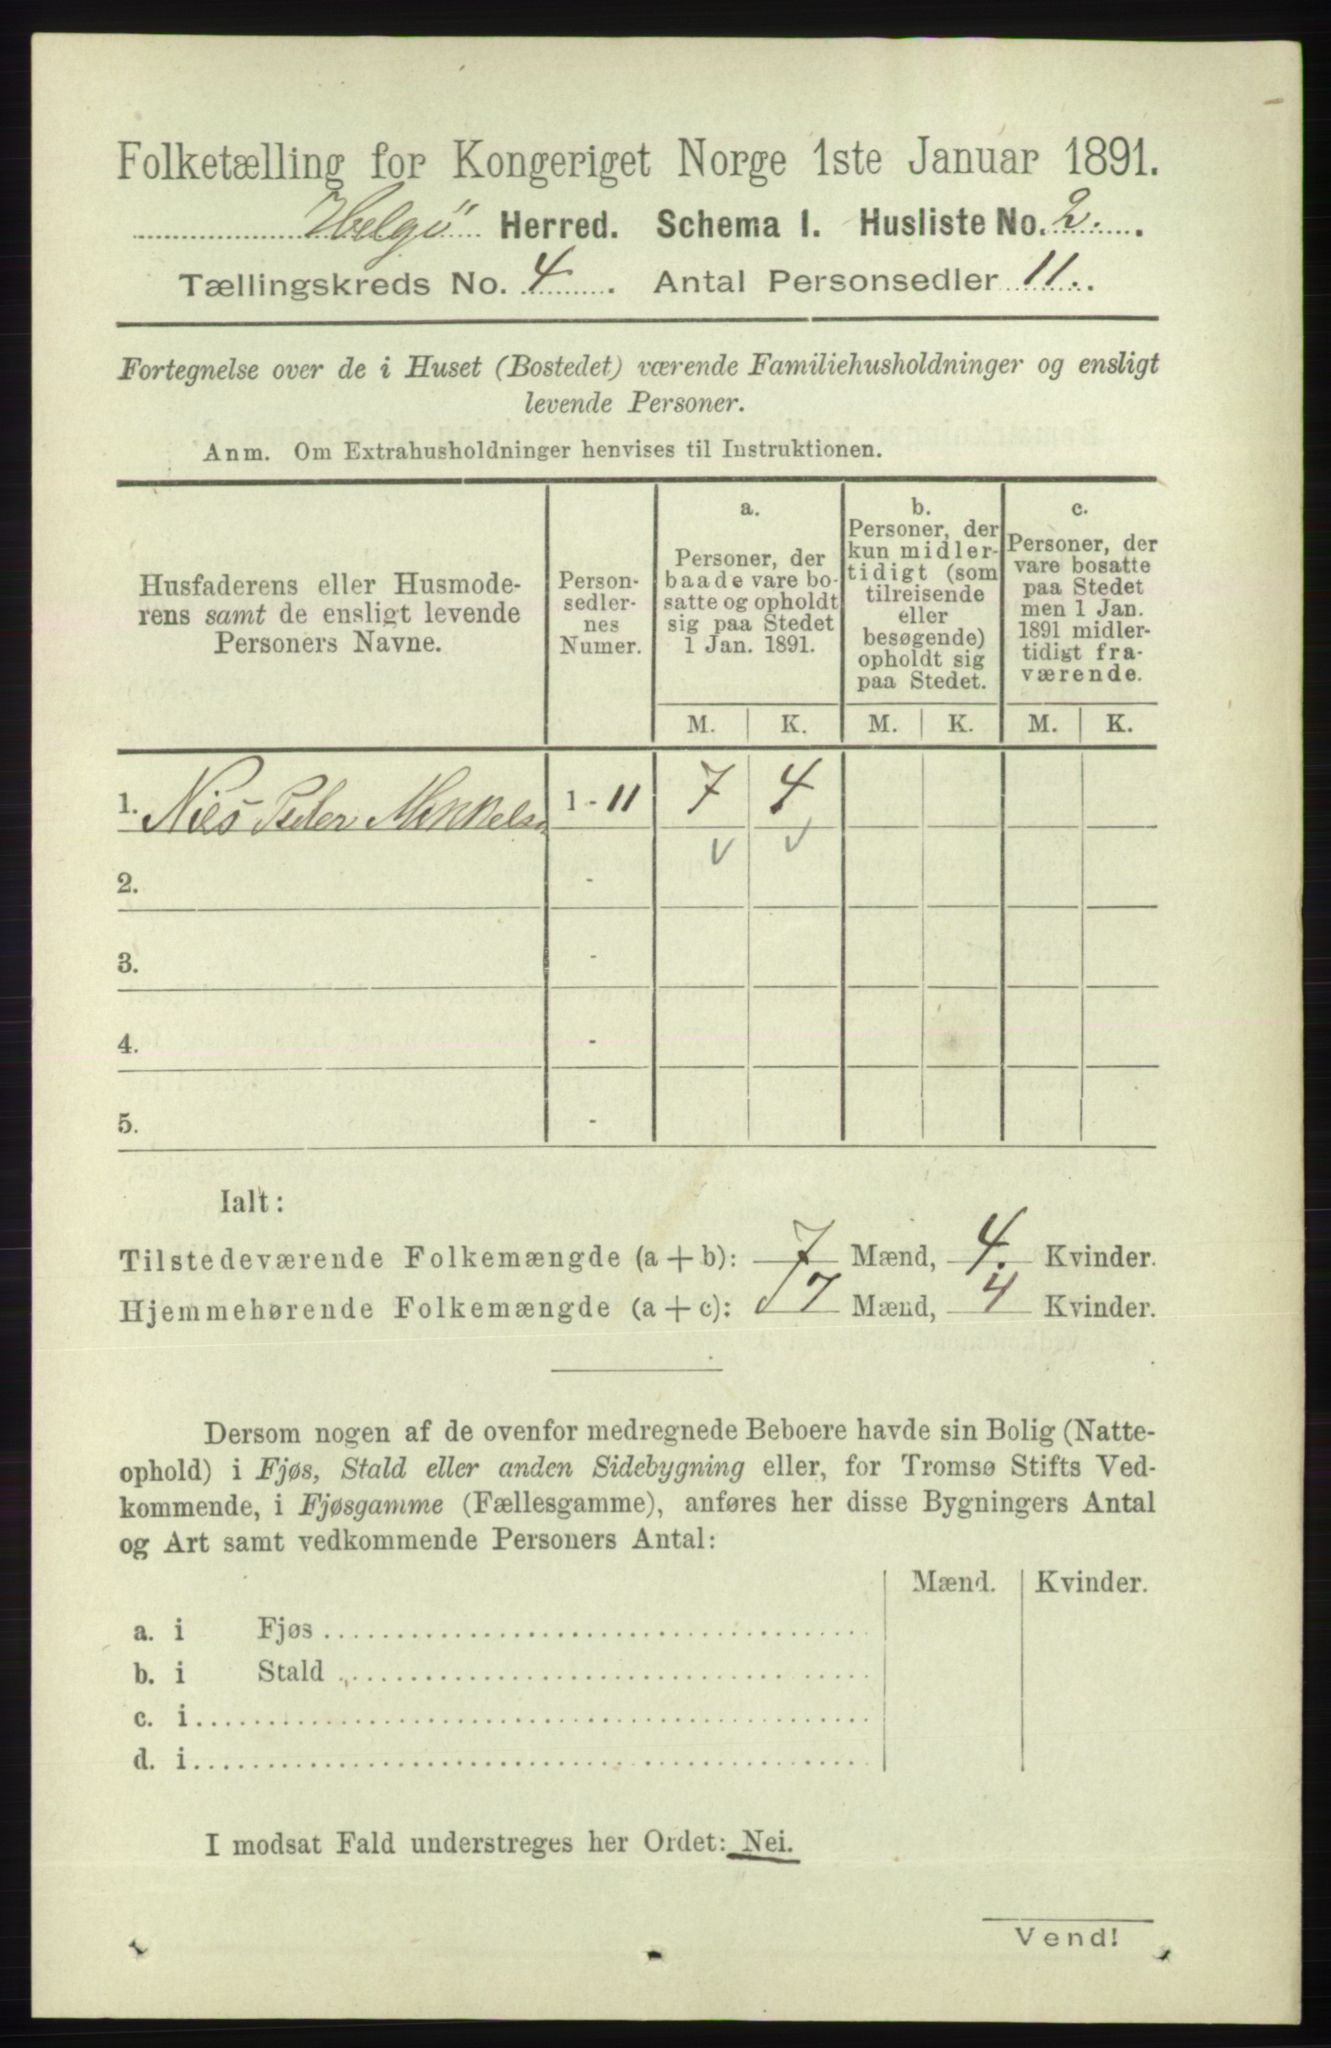 Folketælling for Kongeriget Norge 1ste Januar 1891.
Helgö Herred. Schema I. Husliste No. 2.
Tællingskreds No. 4. Antal Personsedler 11.
Fortegnelse over de i Huset (Bostedet) værende Familiehusholdninger og ensligt
levende Personer.
Anm. Om Extrahusholdninger henvises til Instruktionen.
Husfaderens eller Husmode-
rens samt de ensligt levende
Personers Navne.
Person-
sedler-
nes
Numer.
a.
Personer, der
baade vare bo-
satte og opholdt
sig paa Stedet
1 Jan. 1891.
b.
Personer, der
kun midler-
tidigt (som
tilreisende
eller
besøgende)
opholdt sig
paa Stedet.
c.
Personer, der
vare bosatte
paa Stedet
men 1 Jan.
1891 midler-
tidigt fra-
værende.
M. K. M. K. M. K.
1. Nils Peder Mikkels 1 - 11 7 4
2. -
3. -
4. -
5. -
Ialt:
Tilstedeværende Folkemængde (a + b): 7 Mænd, 4. Kvinder.
Hjemmehørende Folkemængde (a + c): 7 Mænd, 4 Kvinder.
Dersom nogen af de ovenfor medregnede Beboere havde sin Bolig (Natte-
ophold) i Fjøs, Stald eller anden Sidebygning eller, for Tromsø Stifts Ved-
kommende, i Fjøsgamme (Fællesgamme), anføres her disse Bygningers Antal
og Art samt vedkommende Personers Antal:
Mænd. Kvinder.
a. i Fjøs
b. i Stald
c. i
d. i
I modsat Fald understreges her Ordet: Nei.
Vend!